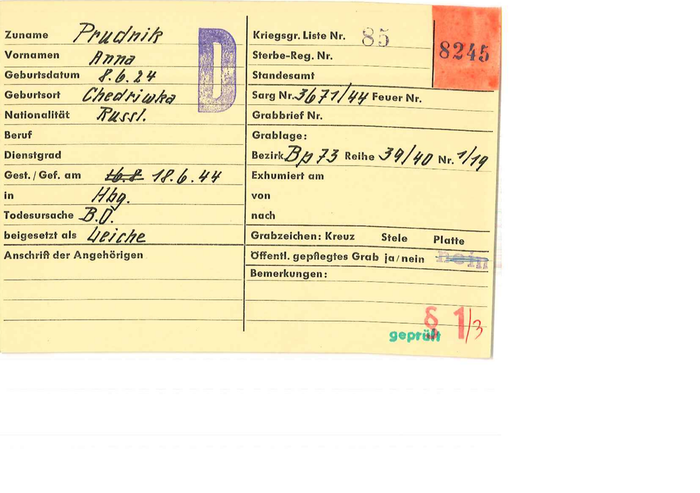 Zuname Prudnik
Vornamen Anna
Geburtsdatum 8.6.24
Geburtsort Chedriwka
Nationalität Russl.
Beruf
Dienstgrad
Gest./Gef. am 16.8 18.6.44
in Hbg.
Todesursache B.O.
beigesetzt als Leiche
Anschrift der Angehörigen
D
Kriegsgr. Liste Nr. 85
8245
Sterbe-Reg. Nr.
Standesamt
Sarg Nr. 3671/44 Feuer Nr.
Grabbrief Nr.
Grablage:
Bezirk Bp 73 Reihe 39/40 Nr. 1/19
Exhumiert am
von
nach
Grabzeichen: Kreuz Stele Platte
Öffentl. gepflegtes Grab ja/nein nein
Bemerkungen:
§ 1/3
geprüft